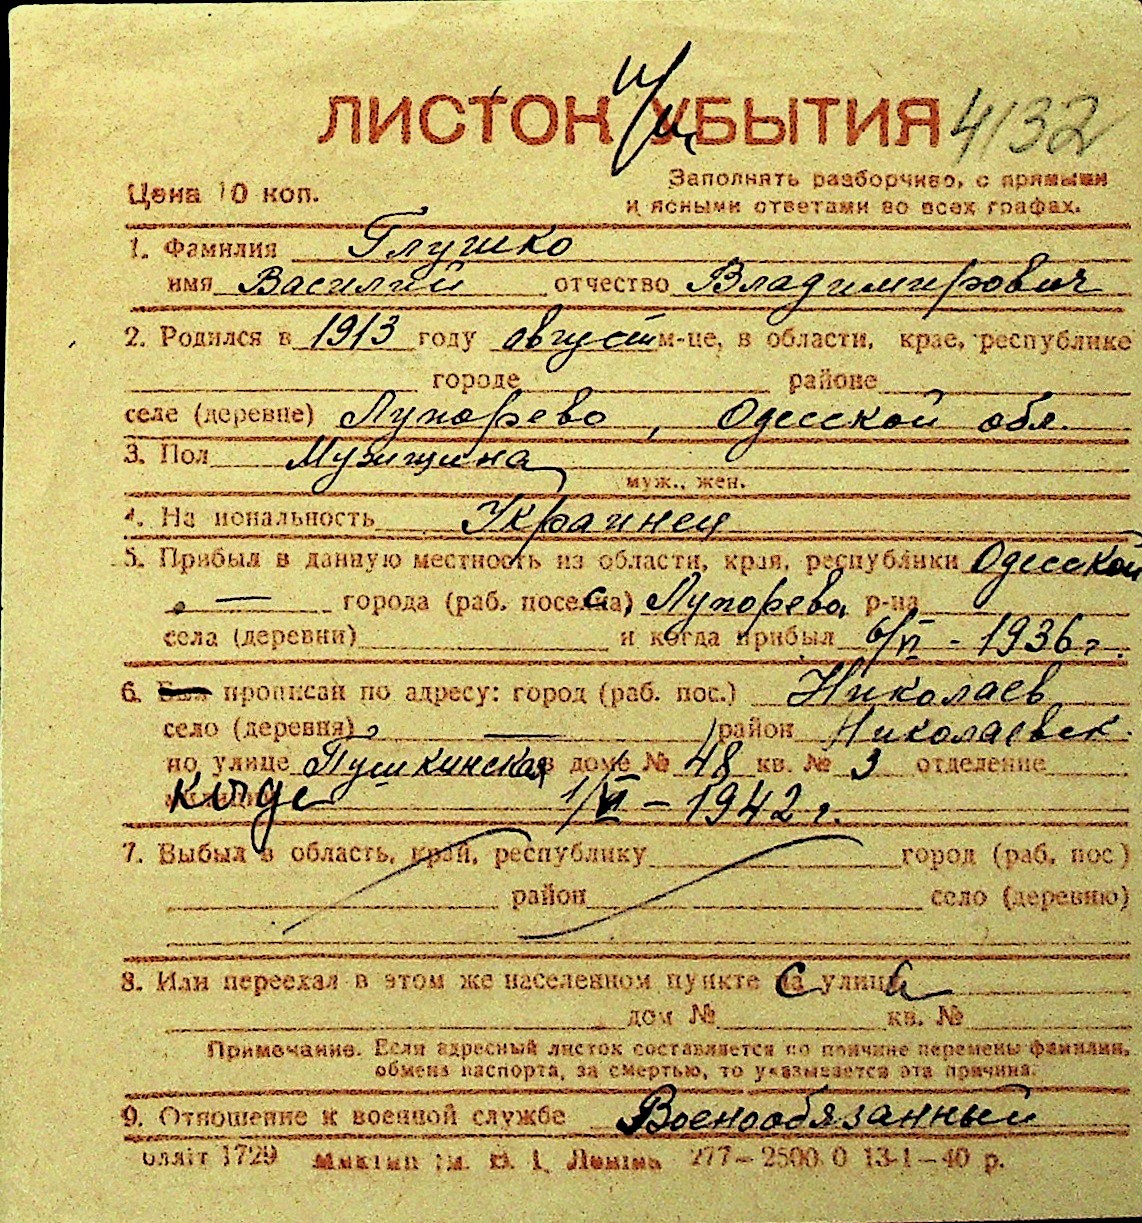 ЛИСТОК УБЫТИЯ 4132
Цена 10 коп.
Заполнять разборчиво, с прямыми
и ясными ответами во всех графах.
1. Фамилия Глушко
имя Василий отчество Владимирович
2. Родился в 1913 году август м-це, в области, крае, республике
городе районе
селе (деревне) Лупорево, Одесской обл.
3. Пол Мужщина
муж., жен.
4. На иональность Украинец
5. Прибыл в данную местность из области, края, республики Одесской
— города (раб. поселка) Лупорево, р-на
села (деревни) и когда прибыл 6/VI - 1936 г.
6. Был прописан по адресу: город (раб. пос.) Николаев
село (деревня) — район Николаевск.
по улице Пушкинская в доме № 48 кв. № 3 отделение
милиции 1/VI - 1942 г.
7. Выбыл в область, край, республику город (раб. пос.)
район село (деревню)
8. Или переехал в этом же населенном пункте на улицу
дом № кв. №
Примечание. Если адресный листок составляется по причине перемены фамилии,
обмена паспорта, за смертью, то указывается эта причина.
9. Отношение к военной службе Военообязанный
облліт 1729 Миктип ім. В. І. Леніна 277—2500.0 13-1—40 р.